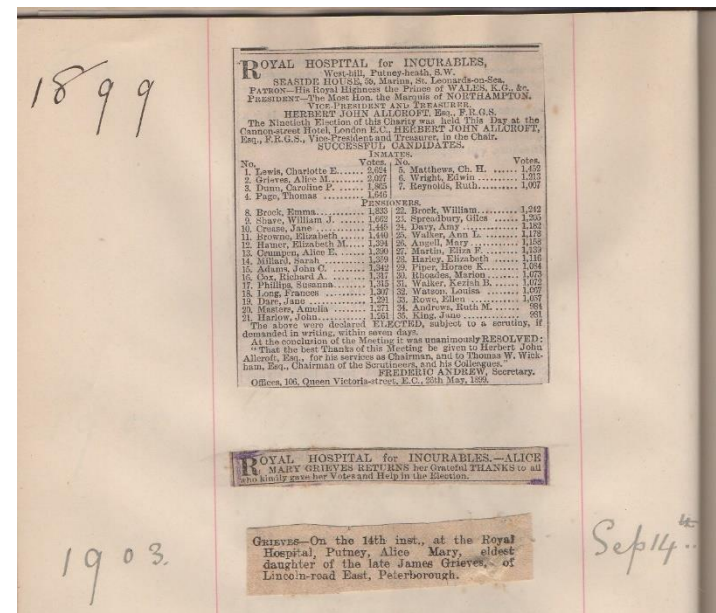 1899
ROYAL HOSPITAL for INCURABLES,
West-hill, Putney-heath, S.W.
SEASIDE HOUSE, 55, Marina, St. Leonards-on-Sea.
PATRON—His Royal Highness the Prince of WALES, K.G., &c.
PRESIDENT—The Most Hon. the Marquis of NORTHAMPTON.
VICE-PRESIDENT AND TREASURER.
HERBERT JOHN ALLCROFT, Esq., F.R.G.S.
The Ninetieth Election of this Charity was held This Day at the
Cannon-street Hotel, London E.C., HERBERT JOHN ALLCROFT,
Esq., F.R.G.S., Vice-President and Treasurer, in the Chair.
SUCCESSFUL CANDIDATES.
INMATES.
No. Votes. No. Votes.
1. Lewis, Charlotte E. 2,624 5. Matthews, Ch. H. 1,452
2. Grieves, Alice M. 2,027 6. Wright, Edwin 1,213
3. Dunn, Caroline P. 1,865 7. Reynolds, Ruth 1,097
4. Page, Thomas 1,646
PENSIONERS.
8. Brock, Emma 1,835 22. Brock, William 1,242
9. Shave, William J. 1,662 23. Spreadbury, Giles 1,205
10. Crease, Jane 1,445 24. Davy, Amy 1,182
11. Browne, Elizabeth 1,440 25. Walker, Ann L. 1,178
12. Hamer, Elizabeth M. 1,394 26. Angell, Mary 1,158
13. Crumpen, Alice E. 1,390 27. Martin, Eliza F. 1,139
14. Millard, Sarah 1,359 28. Harley, Elizabeth 1,116
15. Adams, John C. 1,342 29. Piper, Horace K. 1,084
16. Cox, Richard A. 1,317 30. Rhoades, Marion 1,073
17. Phillips, Susanna 1,315 31. Walker, Keziah B. 1,072
18. Long, Frances 1,307 32. Watson, Louisa 1,067
19. Dare, Jane 1,291 33. Rowe, Ellen 1,057
20. Masters, Amelia 1,271 34. Andrews, Ruth M. 984
21. Harlow, John 1,261 35. King, Jane 981
The above were declared ELECTED, subject to a scrutiny, if
demanded in writing, within seven days.
At the conclusion of the Meeting it was unanimously RESOLVED:
"That the best Thanks of this Meeting be given to Herbert John
Allcroft, Esq., for his services as Chairman, and to Thomas W. Wick-
ham, Esq., Chairman of the Scrutineers, and his Colleagues."
FREDERIC ANDREW, Secretary.
Offices, 106, Queen Victoria-street, E.C., 26th May, 1899.
ROYAL HOSPITAL for INCURABLES.—ALICE
MARY GRIEVES RETURNS her Grateful THANKS to all
who kindly gave her Votes and Help in the Election.
1903.
GRIEVES—On the 14th inst., at the Royal
Hospital, Putney, Alice Mary, eldest
daughter of the late James Grieves, of
Lincoln-road East, Peterborough.
Sep 14th